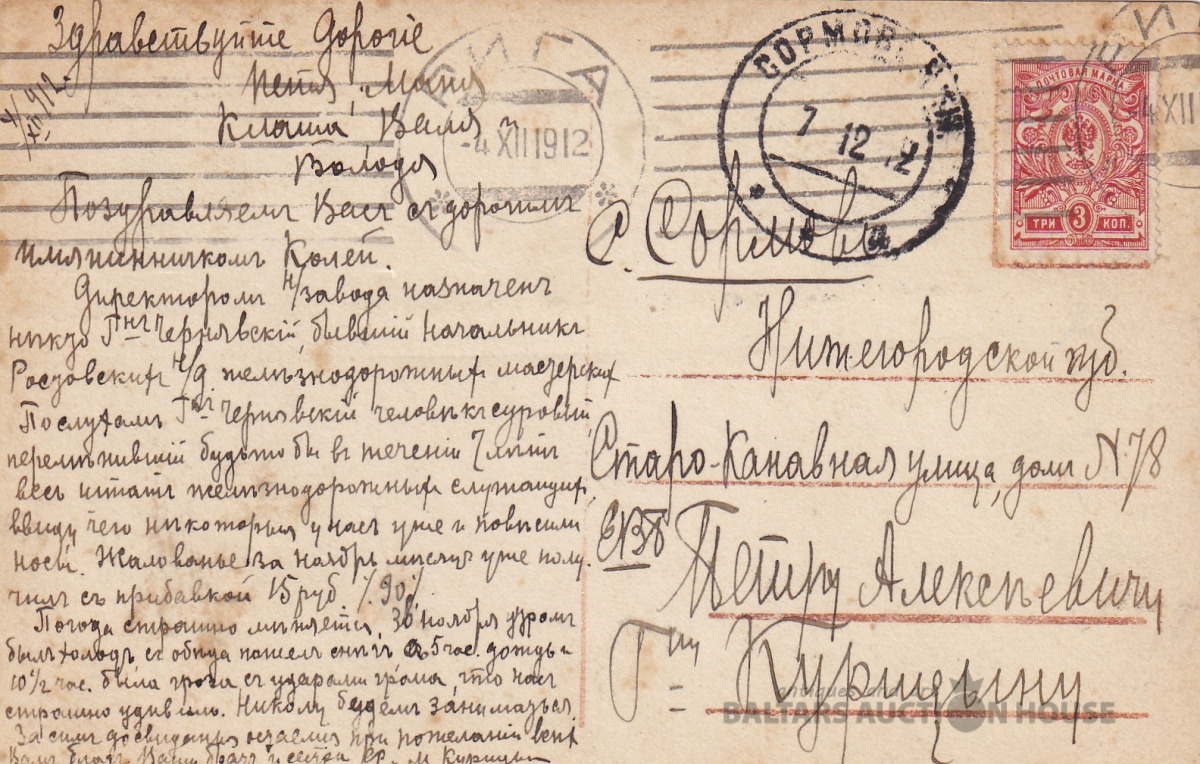 Здравствуйте Дорогіе
Петя, Маня
Клаша, Валя и
Володя
4/XII 912.
Поздравляемъ Васъ съ дорогимъ
имянинникомъ Колей.
Директоромъ н/завода назначенъ
нѣкто Г-нъ Чернявскій, бывшій начальникъ
Ростовскихъ н/Д. желѣзнодорожныхъ мастерскихъ
По слухамъ Г-нъ Чернявскій человѣкъ суровый,
перемѣнившій будьто бы въ теченіи 7 лѣтъ
весь штатъ желѣзнодорожныхъ служащихъ,
ввиду чего нѣкоторыя у насъ уже и повѣсили
носы. Жалованье за ноябрь мѣсяцъ уже полу-
чилъ съ прибавкой 15 руб. /.90./
Погода страшно мѣняется, 30 ноября утромъ
былъ холодъ, съ обѣда пошелъ снѣгъ въ 5 час. дождь и
10 1/2 час. была гроза съ ударами грома, что насъ
страшно удивило. Николу будемъ заниматься.
За симъ досвиданья остаемся при пожеланіи всѣхъ
Вамъ благъ Вашъ братъ и сестра
РИГА
-4 XII 1912
СОРМОВО
7 12 12
ПОЧТОВАЯ МАРКА
ТРИ 3 КОП.
-4 XII
С. Сормово
Нижегородской губ.
Старо-Канавная улица, домъ N 78
ЕВБ
Петру Алексѣевичу
Г-ну Курицыну
antiques and art
BALTARS AUCTION HOUSE